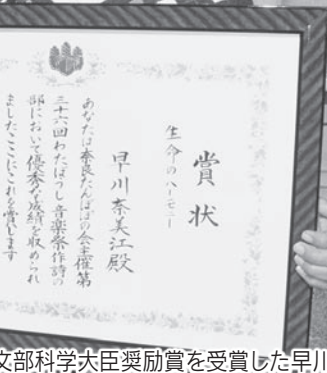 賞状
生命のハーモニー
早川奈美江殿
あなたは奈良たんぽぽの会主催第
三十六回わたぼうし音楽祭作詩の
部において優秀な成績を収められ
ましたここにこれを賞します
文部科学大臣奨励賞を受賞した早川